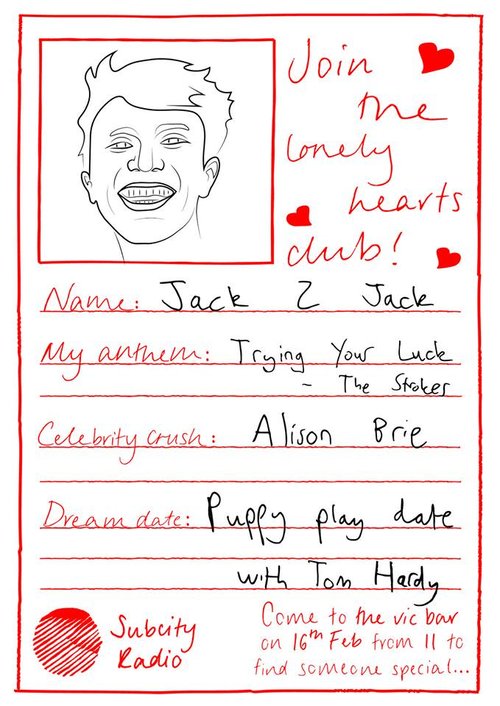 Join
the
lonely
hearts
club!
Name: Jack 2 Jack
My anthem: Trying Your Luck
- The Strokes
Celebrity crush: Alison Brie
Dream date: Puppy play date
with Tom Hardy
Subcity
Radio
Come to the vic bar
on 16th Feb from 11 to
find someone special...